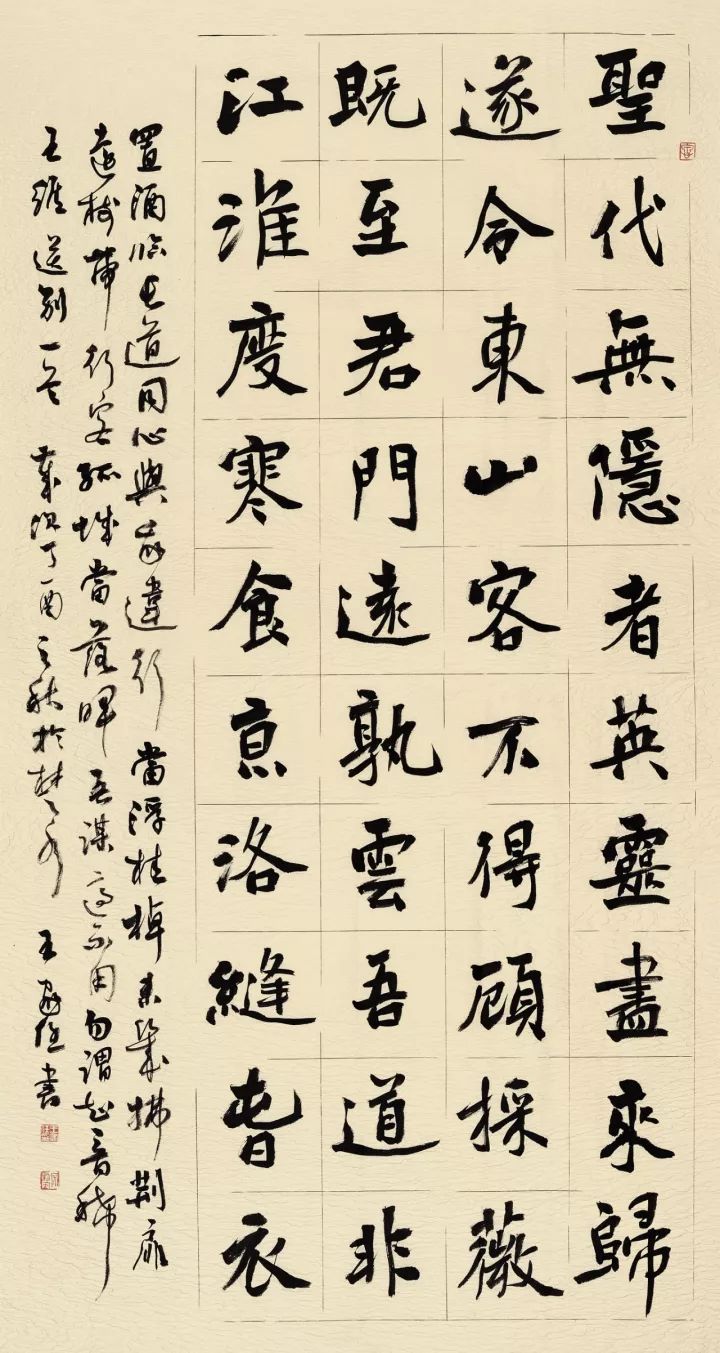 聖代無隱者英靈盡來歸
遂令東山客不得顧採薇
既至君門遠孰雲吾道非
江淮度寒食亰洛縫旾衣
置酒臨長道同心與我違行當浮桂棹未幾拂荆扉
遠樹帶行客孤城當落暉吾謀適不用勿謂知音稀
王維送別一首 歲次丁酉之秋於楚水 王書